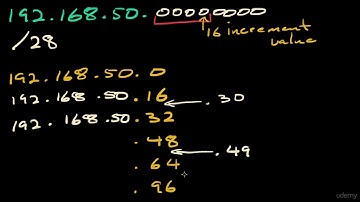 192.168.50.00000000
16 increment value
/28
192.168.50.0
192.168.50.16 .30
192.168.50.32
.48
.49
.64
.96
udemy